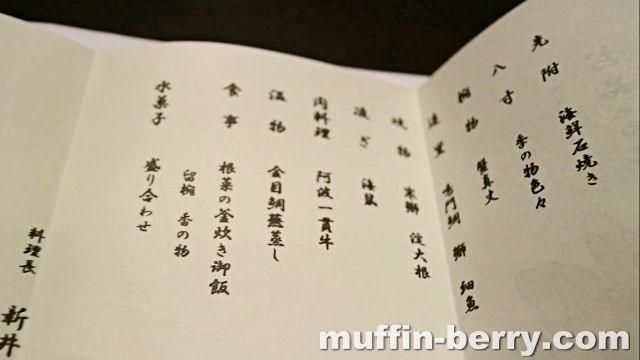 先附 海鮮石焼き
八寸 季の物色々
椀物 蟹真丈
造里 鳴門鯛 鰤 細魚
焼物 寒鰤 淀大根
凌ぎ 海鼠
肉料理 阿波一貫牛
温物 金目鯛蕪蒸し
食事 根菜の釜炊き御飯
留椀 香の物
水菓子 盛り合わせ
料理長 新井
muffin-berry.com